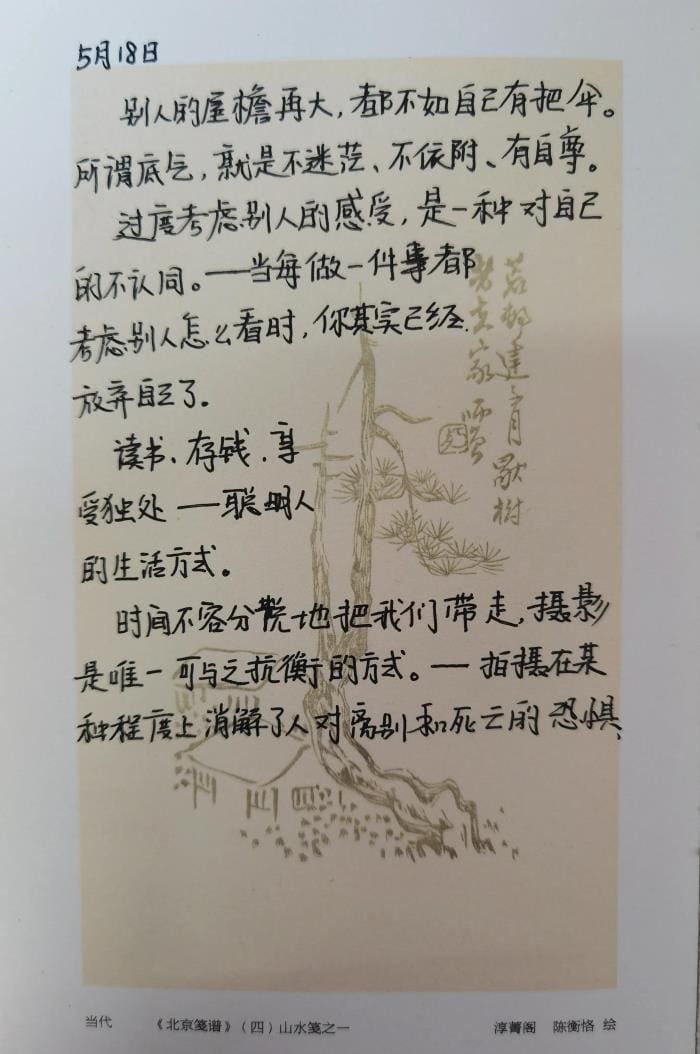 5月18日
别人的屋檐再大，都不如自己有把伞。
所谓底气，就是不迷茫、不依附、有自尊。
过度考虑别人的感受，是一种对自己
的不认同。——当每做一件事都
考虑别人怎么看时，你其实已经
放弃自己了。
读书、存钱、享
受独处——聪明人
的生活方式。
时间不容分说地把我们带走，摄影
是唯一可与之抗衡的方式。——拍摄在某
种程度上消解了人对离别和死亡的恐惧
当代 《北京笺谱》（四）山水笺之一 淳菁阁 陈衡恪 绘